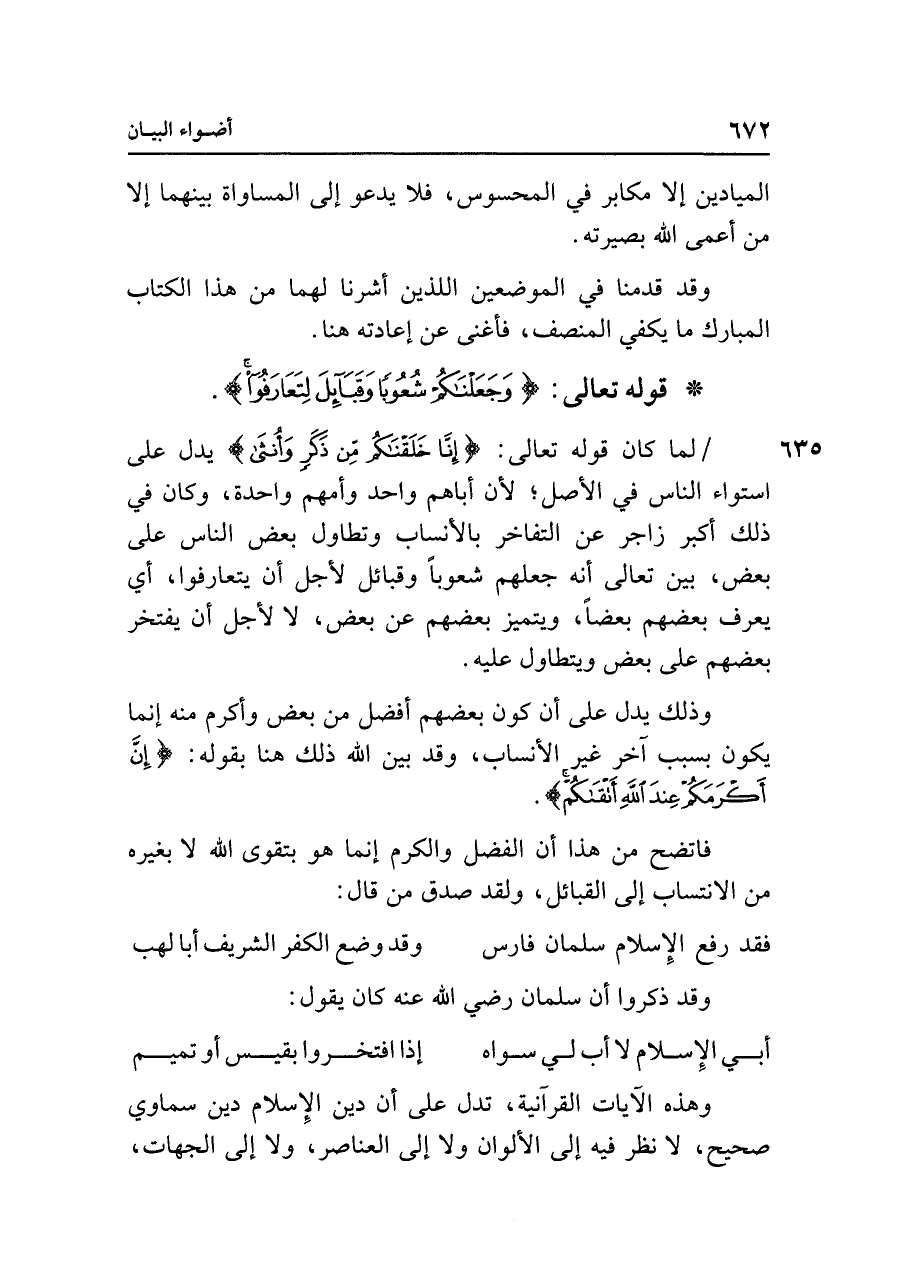 ٦٧٢ أضـواء البيـان
الميادين إلا مكابر في المحسوس، فلا يدعو إلى المساواة بينهما إلا
من أعمى الله بصيرته.
وقد قدمنا في الموضعين اللذين أشرنا لهما من هذا الكتاب
المبارك ما يكفي المنصف، فأغنى عن إعادته هنا.
* قوله تعالى: ﴿وَجَعَلْنَٰكُمْ شُعُوبًا وَقَبَآئِلَ لِتَعَارَفُوٓا۟ۚ﴾.
٦٣٥ / لما كان قوله تعالى: ﴿إِنَّا خَلَقْنَٰكُم مِّن ذَكَرٍ وَأُنثَىٰ﴾ يدل على
استواء الناس في الأصل؛ لأن أباهم واحد وأمهم واحدة، وكان في
ذلك أكبر زاجر عن التفاخر بالأنساب وتطاول بعض الناس على
بعض، بين تعالى أنه جعلهم شعوباً وقبائل لأجل أن يتعارفوا، أي
يعرف بعضهم بعضاً، ويتميز بعضهم عن بعض، لا لأجل أن يفتخر
بعضهم على بعض ويتطاول عليه.
وذلك يدل على أن كون بعضهم أفضل من بعض وأكرم منه إنما
يكون بسبب آخر غير الأنساب، وقد بين الله ذلك هنا بقوله: ﴿إِنَّ
أَكْرَمَكُمْ عِندَ ٱللَّهِ أَتْقَىٰكُمْۚ﴾.
فاتضح من هذا أن الفضل والكرم إنما هو بتقوى الله لا بغيره
من الانتساب إلى القبائل، ولقد صدق من قال:
فقد رفع الإِسلام سلمان فارس وقد وضع الكفر الشريف أبا لهب
وقد ذكروا أن سلمان رضي الله عنه كان يقول:
أبـــي الإِســلام لا أب لــي ســواه إذا افتخــروا بقيــس أو تميــم
وهذه الآيات القرآنية، تدل على أن دين الإِسلام دين سماوي
صحيح، لا نظر فيه إلى الألوان ولا إلى العناصر، ولا إلى الجهات،